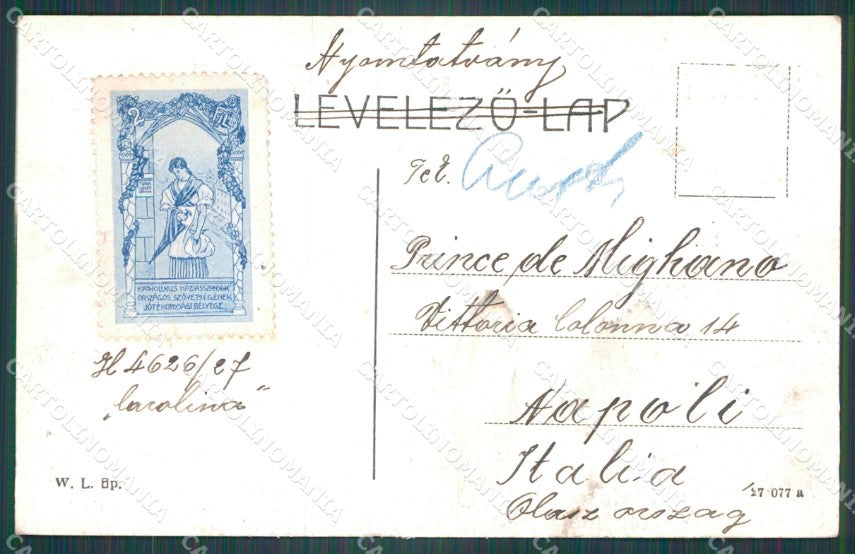 Nyomtatvány
LEVELEZŐ-LAP
Tek.
Prince de Mighano
Vittoria Colonna 14
Napoli
Italia
Olasz ország
KATHOLIKUS HÁZIASSZONYOK
ORSZÁGOS SZÖVETSÉGÉNEK
JÓTÉKONYSÁGI BÉLYEGE
H 4626/27
„Carolina"
W. L. Bp.
27 077 a
CARTOLINOMANIA